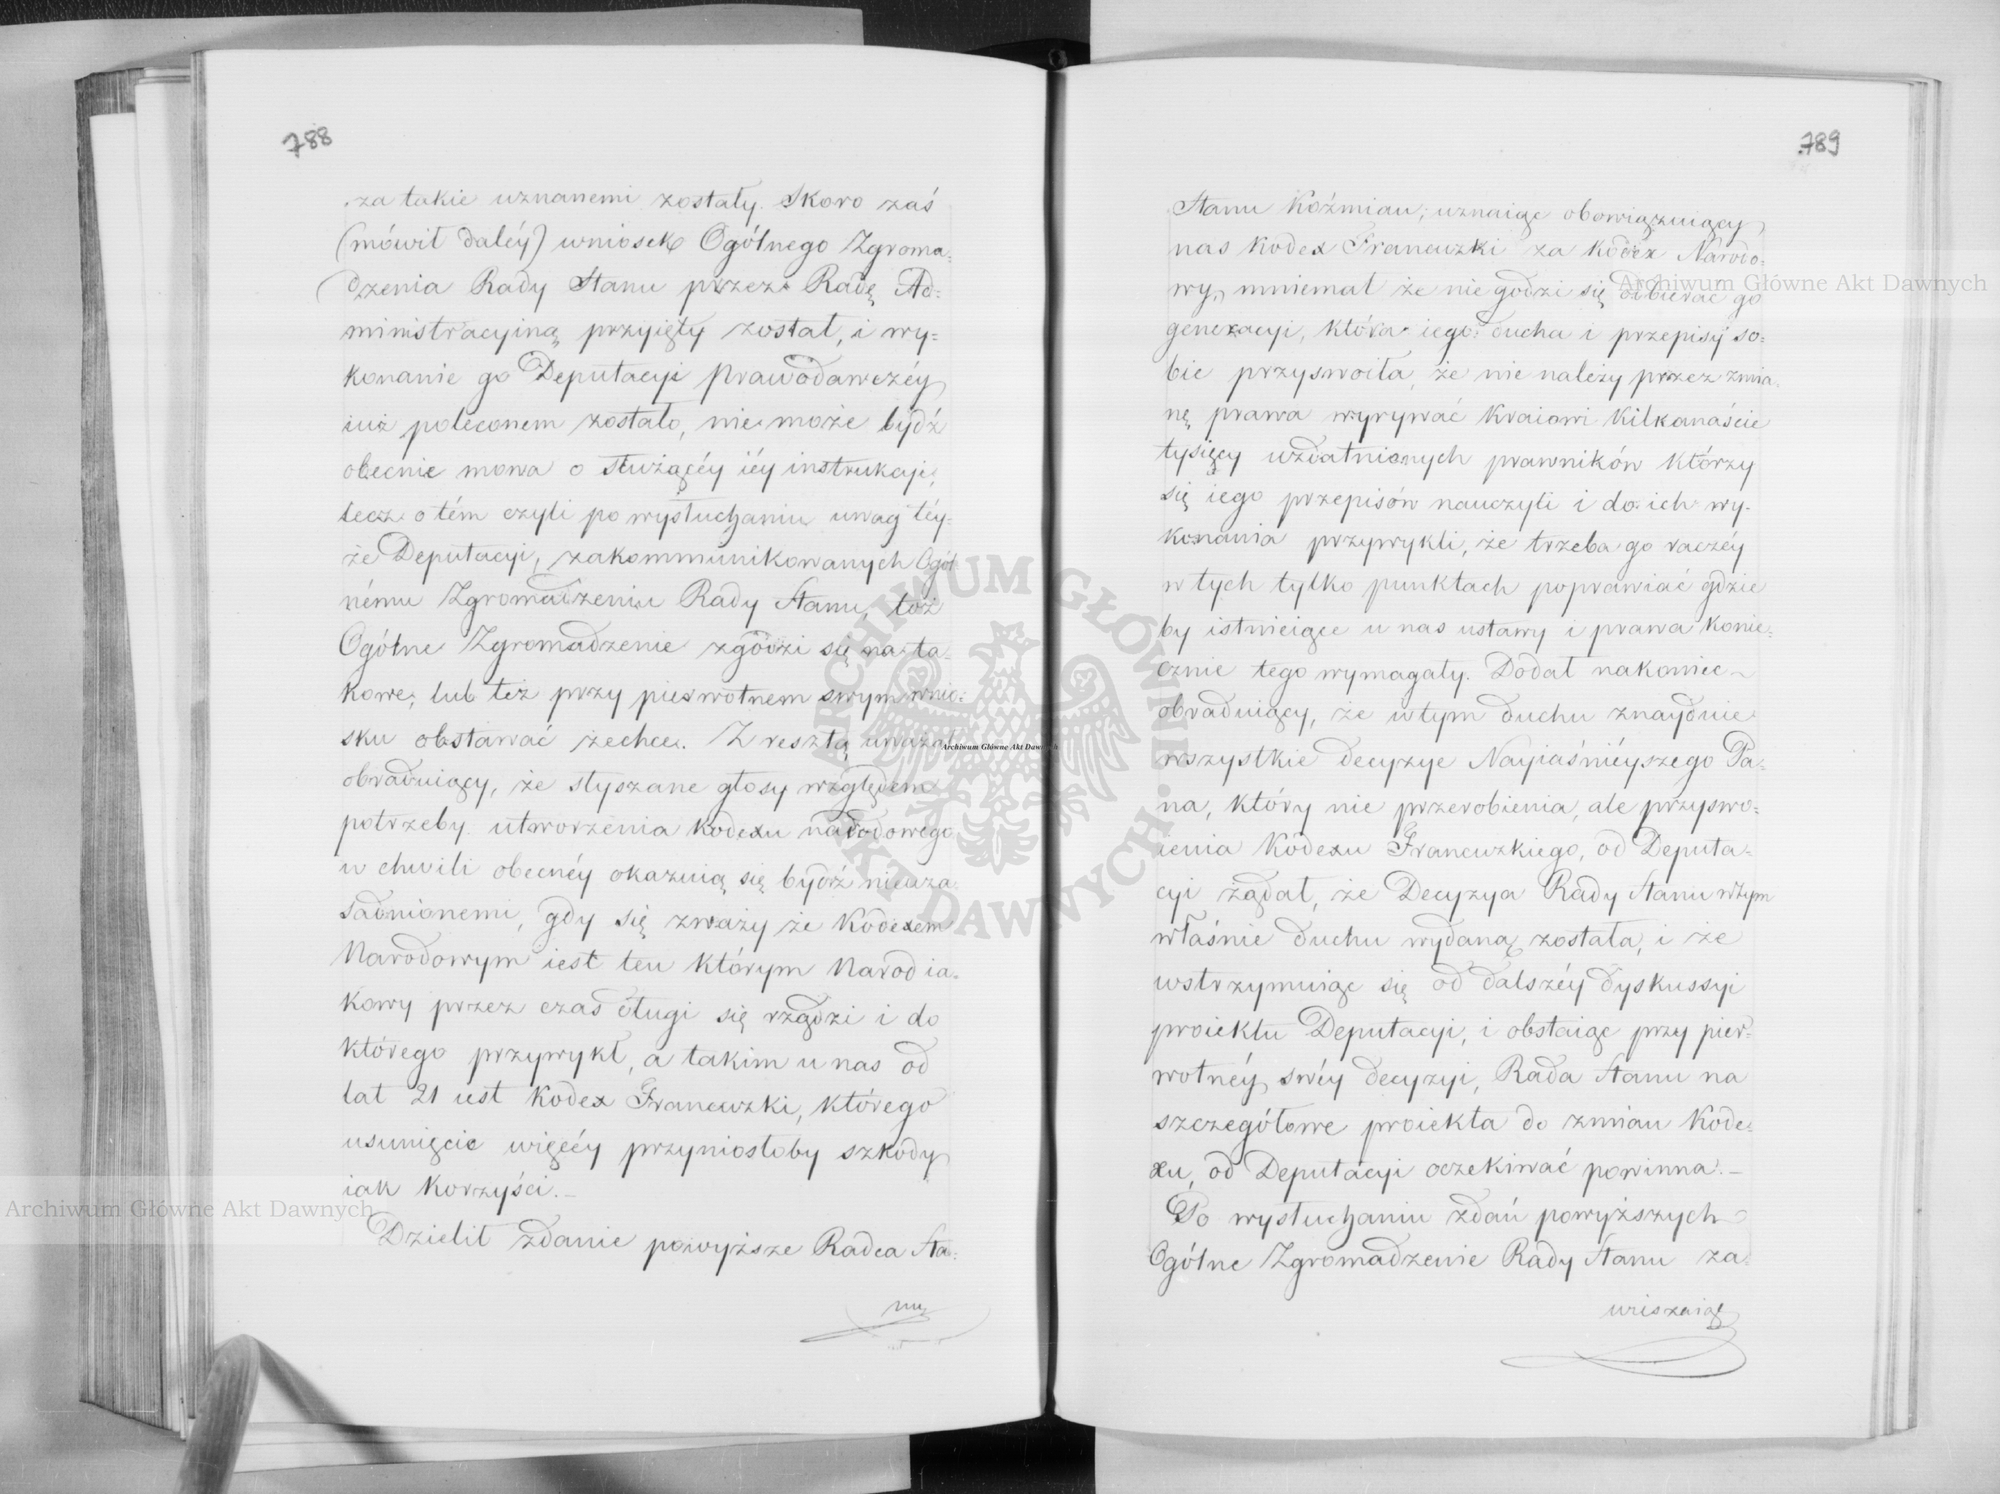 788
za takie uznanemi zostały. Skoro zaś
(mówił daléy) wniosek Ogólnego Zgroma-
dzenia Rady Stanu przez Radę Ad-
ministracyiną przyięty został, i wy-
konanie go Deputacyi prawodawczéy
iuż poleconem zostało, nie może bydź
obecnie mowa o służącéy iéy instrukcyi,
lecz o tém czyli po wysłuchaniu uwag téy-
że Deputacyi, zakommunikowanych Ogól-
nému Zgromadzeniu Rady Stanu, toż
Ogólne Zgromadzenie zgodzi się na ta-
kowe, lub też przy pierwotnem swym wnio-
sku obstawać zechce. Z resztą uważał
obraduiący, że słyszane głosy względem
potrzeby utworzenia kodexu narodowego
w chwili obecnéy okazuią się bydź nieuza-
sadnionemi, gdy się zważy że Kodexem
Narodowym iest ten którym Naród ia-
kowy przez czas długi się rządzi i do
którego przywykł, a takim u nas od
lat 21 iest Kodex Francuzki, którego
usunięcie więcéy przyniosłoby szkody
iak korzyści.—
Dzielił zdanie powyższe Radca Sta-
nu
789
Stanu Koźmian; uznaiąc obowiązuiący
nas Kodex Francuzki za kodex Narodo-
wy, mniemał że nie godzi się odbierać go
generacyi, która iego ducha i przepisy so-
bie przyswoiła, że nie należy przez zmia-
nę prawa wyrywać kraiowi kilkanaście
tysięcy uzdatnionych prawników którzy
się iego przepisów nauczyli i do ich wy-
konania przywykli, że trzeba go raczéy
w tych tylko punktach poprawiać gdzie
by istnieiące u nas ustawy i prawa konie-
cznie tego wymagały. Dodał nakoniec
obraduiący, że w tym duchu znayduie
wszystkie decyzye Nayiaśniéyszego Pa-
na, który nie przerobienia, ale przyswo-
ienia Kodexu Francuzkiego, od Deputa-
cyi żądał, że Decyzya Rady Stanu w tym
właśnie duchu wydaną została, i że
wstrzymuiąc się od dalszéy dyskussyi
proiektu Deputacyi, i obstaiąc przy pier-
wotnéy swéy decyzyi, Rada Stanu na
szczegółowe proiekta do zmian Kode-
xu, od Deputacyi oczekiwać powinna.—
Po wysłuchaniu zdań powyższych
Ogólne Zgromadzenie Rady Stanu za-
wieszaiąc
Archiwum Główne Akt Dawnych
Archiwum Główne Akt Dawnych
Archiwum Główne Akt Dawnych
ARCHIWUM GŁÓWNE AKT DAWNYCH